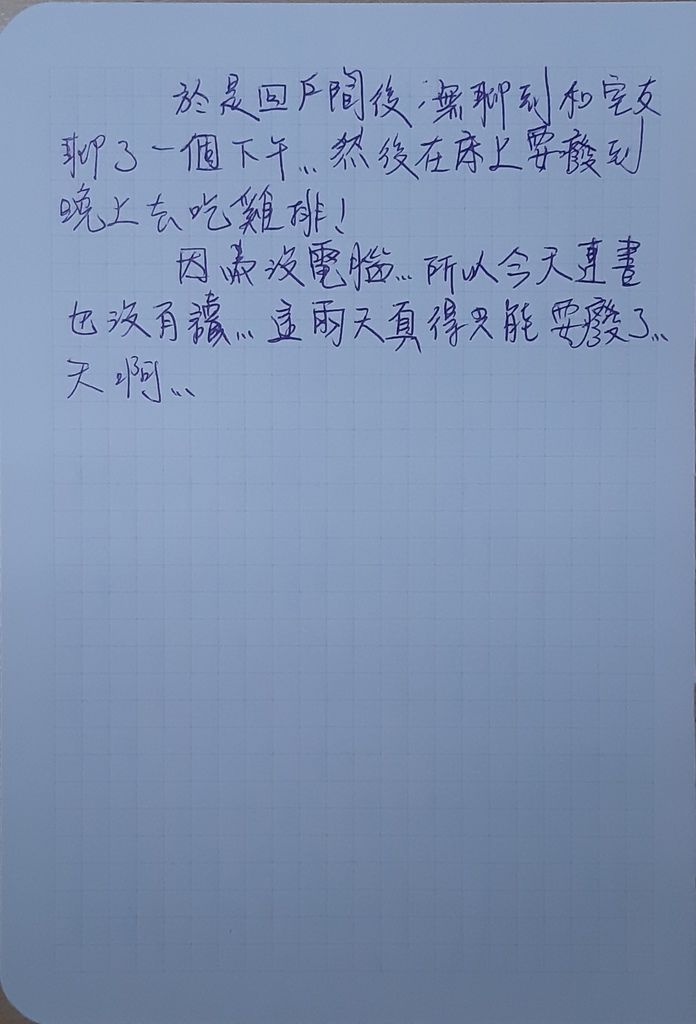 於是回戶間後,無聊到和室友
聊了一個下午...然後在床上耍廢到
晚上去吃雞排!
因為沒電腦...所以今天連書
也沒有讀...這兩天真得只能耍廢了...
天啊...